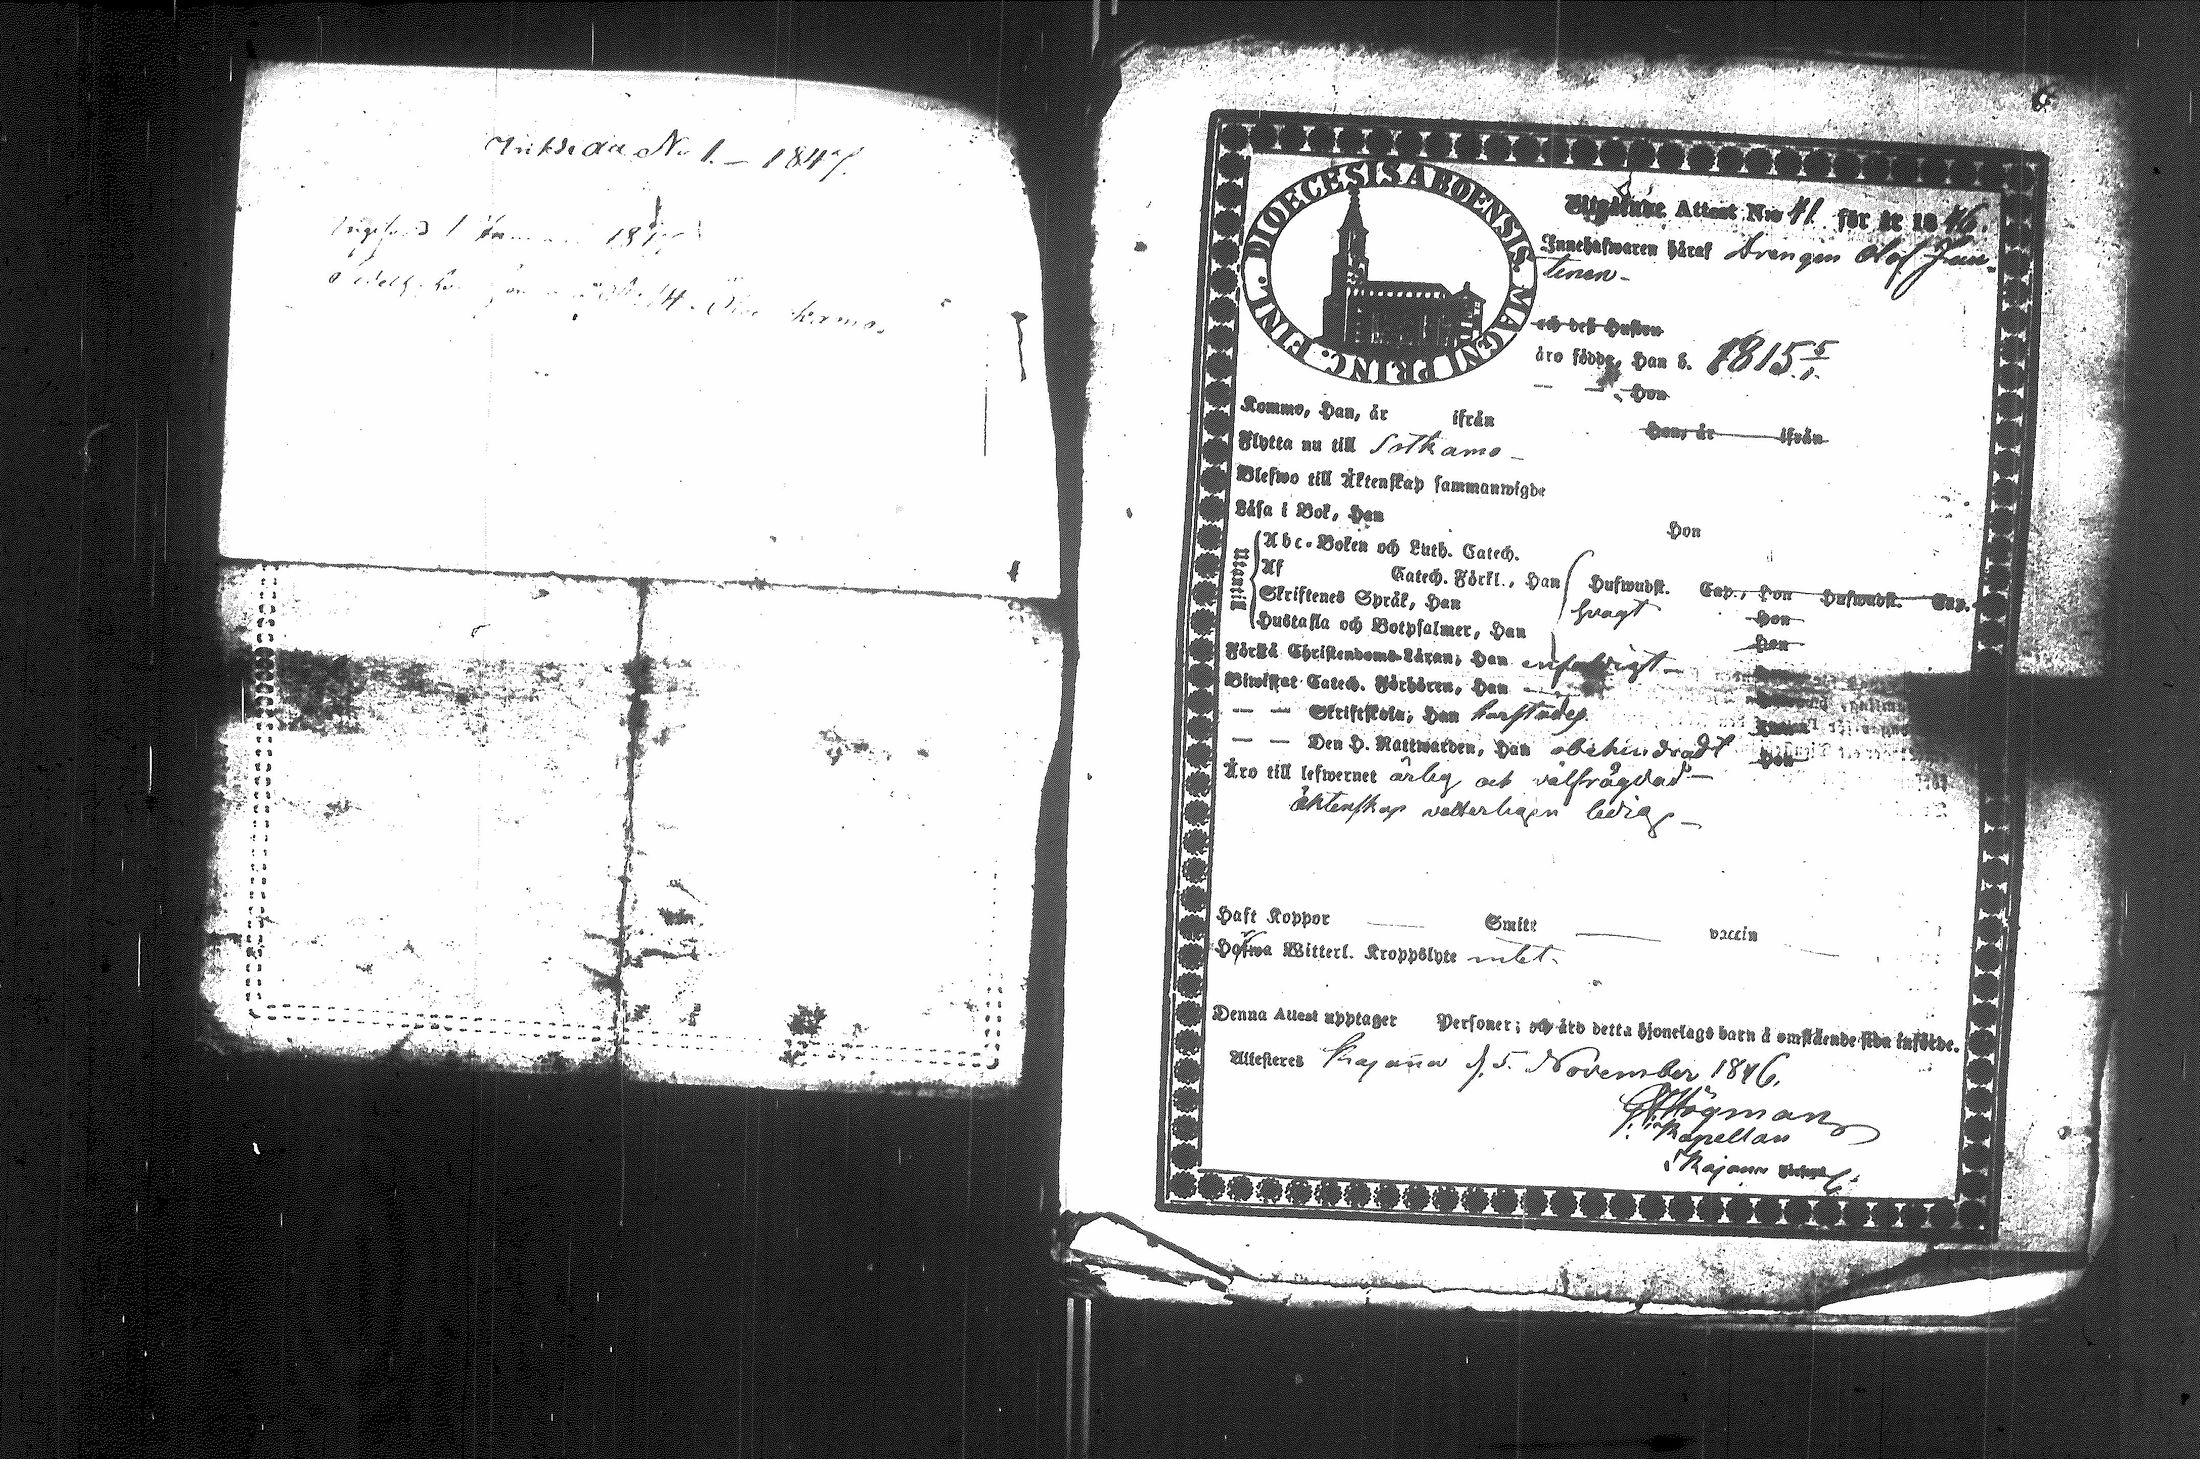 Inkl. N: 1. – 1847.
Ingifvet 1 1847
DIOECESIS ABOENSIS. MAGNI PRINC. FINL.
Utgående Attest N:o 41. för år 1846.
Innehafwaren häraf Drengen Olof Jun-
tunen –
och dess Hustru
äro födde, Han d. 1815 5/1.
— — Hon
Kommo, Han, år ifrån Hon, år ifrån
Flytta nu till Sotkamo –
Blefwo till Äktenskap sammanwigde
Läsa i Bok, Han Hon
Utantill
Abc-Boken och Luth. Catech.
Af Catech. Förkl., Han Hufwudst. Cap., Hon Hufwudst. Cap.
Skriftenes Språk, Han svagt Hon
Hustafla och Botpsalmer, Han Hon
Förstå Christendoms-Läran, Han enfaldigt – Hon
Biwistat Catech. Förhören, Han —
— — Skriftskola, Han
— — Den H. Nattwarden, Han obehindradt Hon
Äro till lefwernet ärlig och välfrägdad –
äktenskap vetterligen ledig –
Haft Koppor — Smitt — vaccin —
Hafwa Witterl. Kroppslyte intet.
Denna Attest upptager Personer; och äro detta hjonelags barn å omstående sida införde.
Attesteres Kajana d. 5. November 1846.
Högman
Kapellan
i Kajana